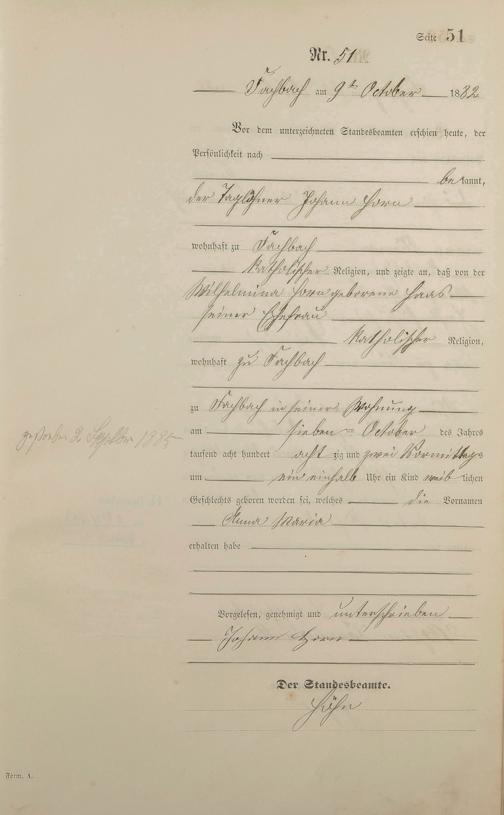 Seite 51
Nr. 51
Fachbach am 9t October 1882
Vor dem unterzeichneten Standesbeamten erschien heute, der
Persönlichkeit nach
be kannt,
der Taglöhner Johann Horn
wohnhaft zu Fachbach
katholischer Religion, und zeigte an, daß von der
Wilhelmina Horn geborene Haas
seiner Ehefrau
katholischer Religion,
wohnhaft zu Fachbach
zu Fachbach in seiner Wohnung
am sieben October des Jahres
tausend acht hundert acht zig und zwei Vormittags
um ein einhalb Uhr ein Kind weib lichen
Geschlechts geboren worden sei, welches die Vornamen
Anna Maria
erhalten habe
gestorben 2 1925
Vorgelesen, genehmigt und unterschrieben
Johann Horn
Der Standesbeamte.
Höhn
Form. A.